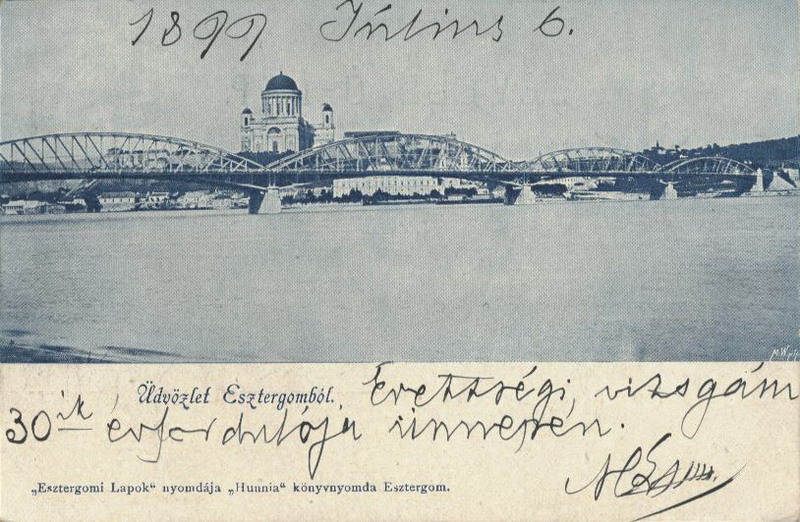 1899 Július 6.
Üdvözlet Esztergomból. Érettségi vizsgám
30ik érfordulója ünnepén.
„Esztergomi Lapok“ nyomdája „Hunnia“ könyvnyomda Esztergom.